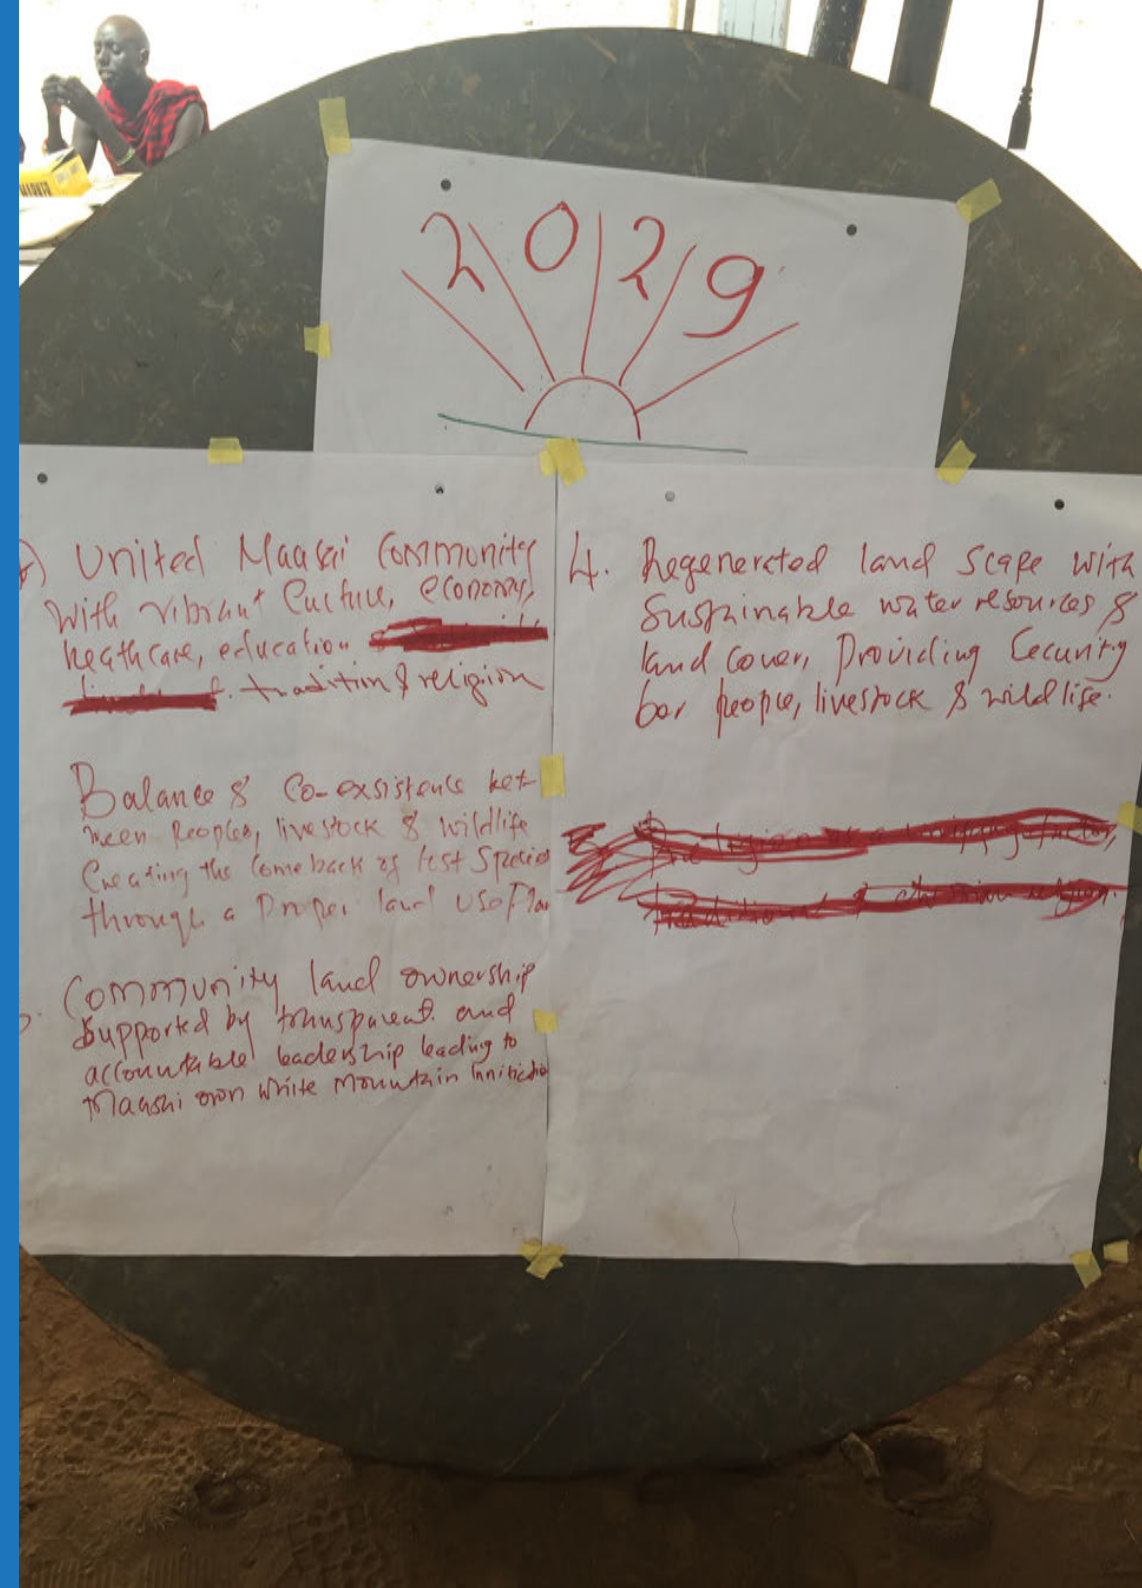 MARKER
2029
United Maasai Community
With vibrant Culture, economy,
heathcare, education
tradition & religion
Balance & Co-exsistence bet-
ween Peoples, livestock & wildlife
Creating the Comeback of lost Species
through a Proper land Use Plan
Community land ownership
Supported by transparent and
accountable leadership leading to
Maashi own White Mountain
4. Regenerated land scape with
Sustainable water resources &
land cover, Providing Security
for people, livestock & wildlife.